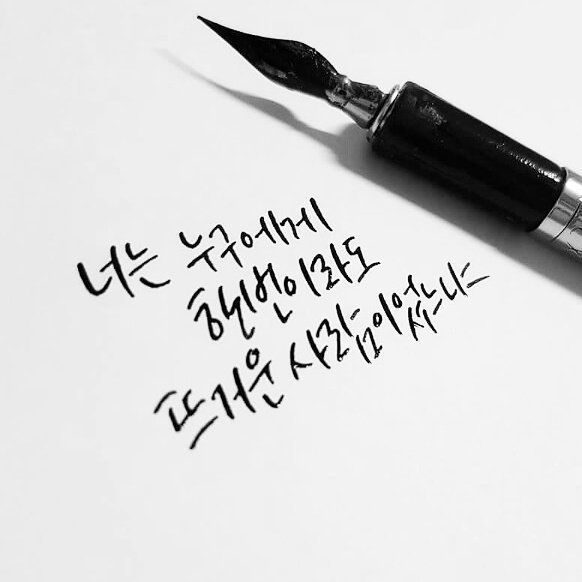 너는 누구에게
한번이라도
뜨거운 사람이었느냐